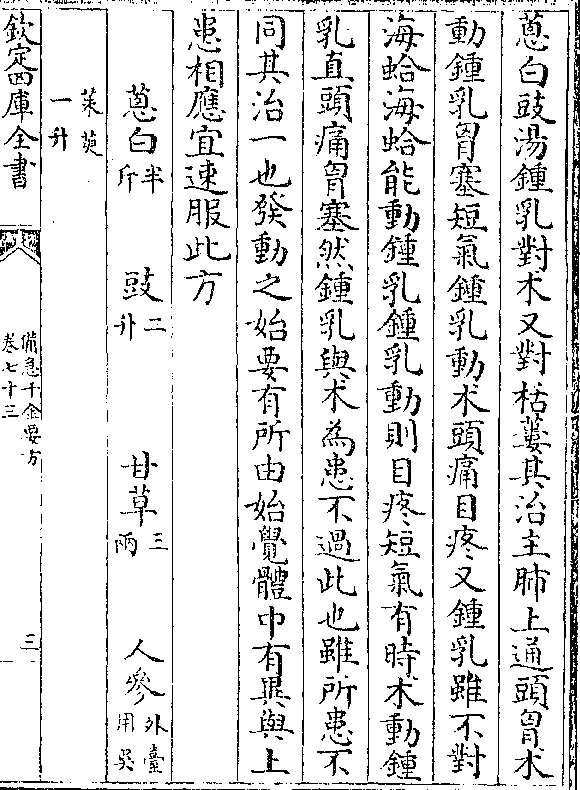 蔥白豉湯鍾乳對术又對栝蔞其治主肺上通頭胷术
動鍾乳胷塞短氣鍾乳動术頭痛目疼又鍾乳雖不對
海蛤海蛤能動鍾乳鍾乳動則目疼短氣有時术動鍾
乳直頭痛胷塞然鍾乳與术為患不過此也雖所患不
同其治一也發動之始要有所由始覺體中有異與上
患相應宜速服此方
蔥白半斤 豉二升 甘草三兩 人參外臺用吳
茱萸一升
欽定四庫全書
備急千金要方
卷七十三
三